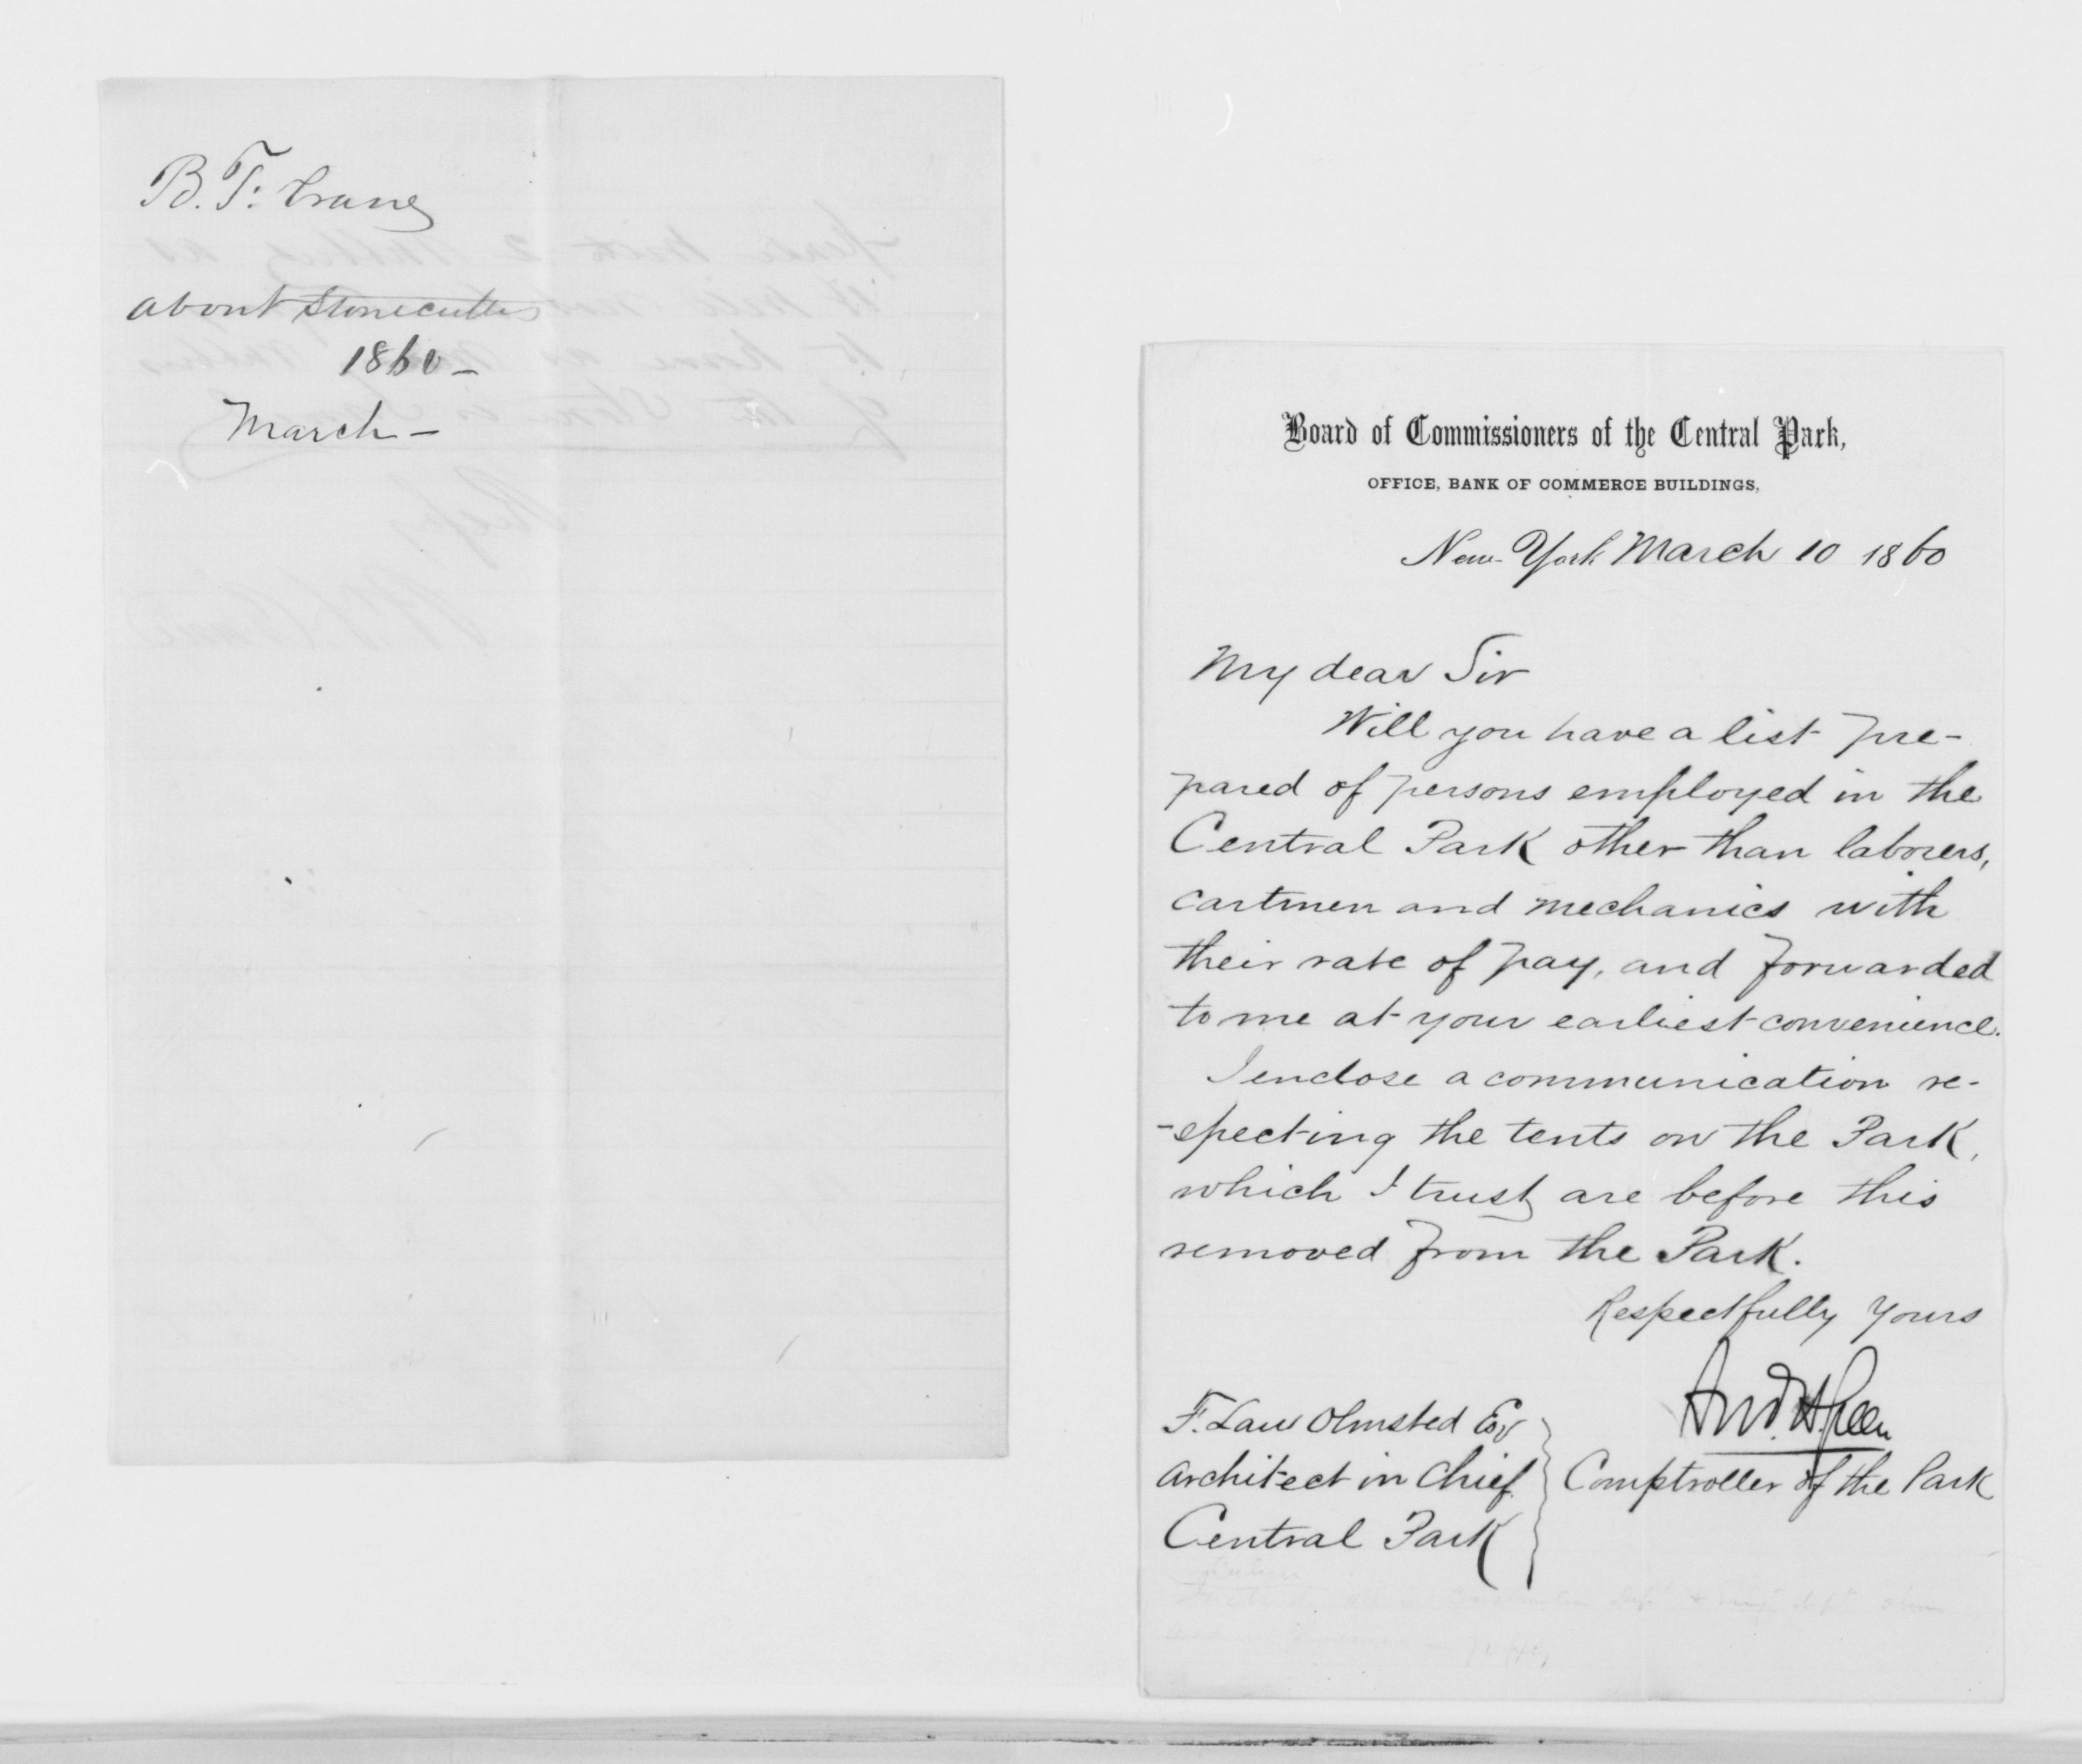 B. T. Crane
about Stonecutters
1860 -
March -
Board of Commissioners of the Central Park,
OFFICE, BANK OF COMMERCE BUILDINGS,
New-York March 10 1860
My dear Sir
Will you have a list pre-
pared of persons employed in the
Central Park other than laborers,
cartmen and mechanics with
their rate of pay, and forwarded
to me at your earliest convenience.
I enclose a communication re-
-specting the tents on the Park,
which I trust are before this
removed from the Park.
Respectfully Yours
And. H. Green
F. Law Olmsted Esq
Architect in Chief
Comptroller of the Park
Central Park